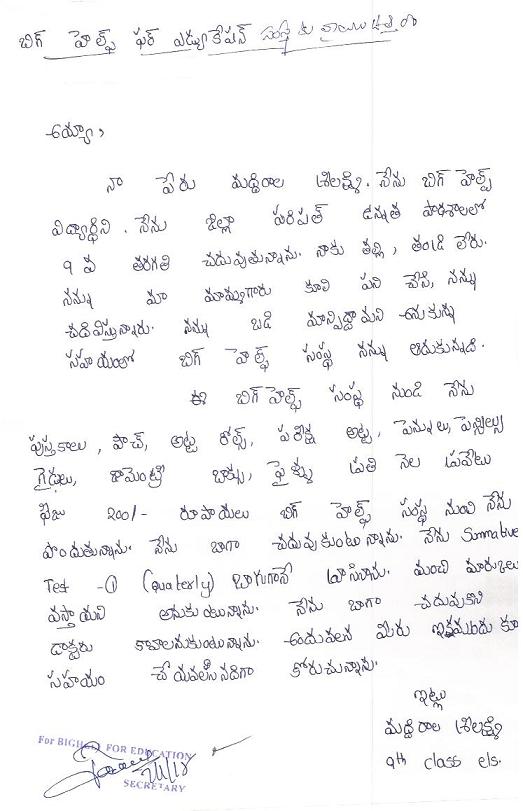 బిగ్ హెల్ప్ ఫర్ ఎడ్యుకేషన్ సంస్థ కు వ్రాయు
అయ్యా,
నా పేరు మద్దిరాల శ్రీలక్ష్మి. నేను బిగ్ హెల్ప్
విద్యార్థిని. నేను జిల్లా పరిషత్ ఉన్నత పాఠశాలలో
9 వ తరగతి చదువుతున్నాను. నాకు తల్లి, తండ్రి లేరు.
నన్ను మా మామ్మగారు కూలి పని చేసి, నన్ను
చదివిస్తున్నారు. నన్ను బడి మాన్పిద్దామని అనుకున్న
సహయంలో బిగ్ హెల్ప్ సంస్థ నన్ను ఆదుకున్నది.
ఈ బిగ్ హెల్ప్ సంస్థ నుండి నేను
పుస్తకాలు, పౌచ్, అట్ట రోల్స్, పరీక్ష అట్ట, పెన్నులు, పెన్సిల్సు
గైడులు, జామెంట్రీ బాక్సు, ప్రతి నెల ప్రైవేటు
ఫీజు 200/- రూపాయలు బిగ్ హెల్ప్ సంస్థ నుంచి నేను
పొందుతున్నాను. నేను బాగా చదువుకుంటున్నాను. నేను Summative
Test - 1 (quaterly) బాగుగానే వ్రాసినాను. మంచి మార్కులు
వస్తాయని అనుకుంటున్నాను. నేను బాగా చదువుకొని
డాక్టరు కావాలనుకుంటున్నాను. అందువలన మీరు ఇకముందు కూ
సహయం చేయవలసినదిగా కోరుచున్నాను.
ఇట్లు
మద్దిరాల శ్రీలక్ష్మి
9th class
For BIG FOR EDUCATION
SECRETARY